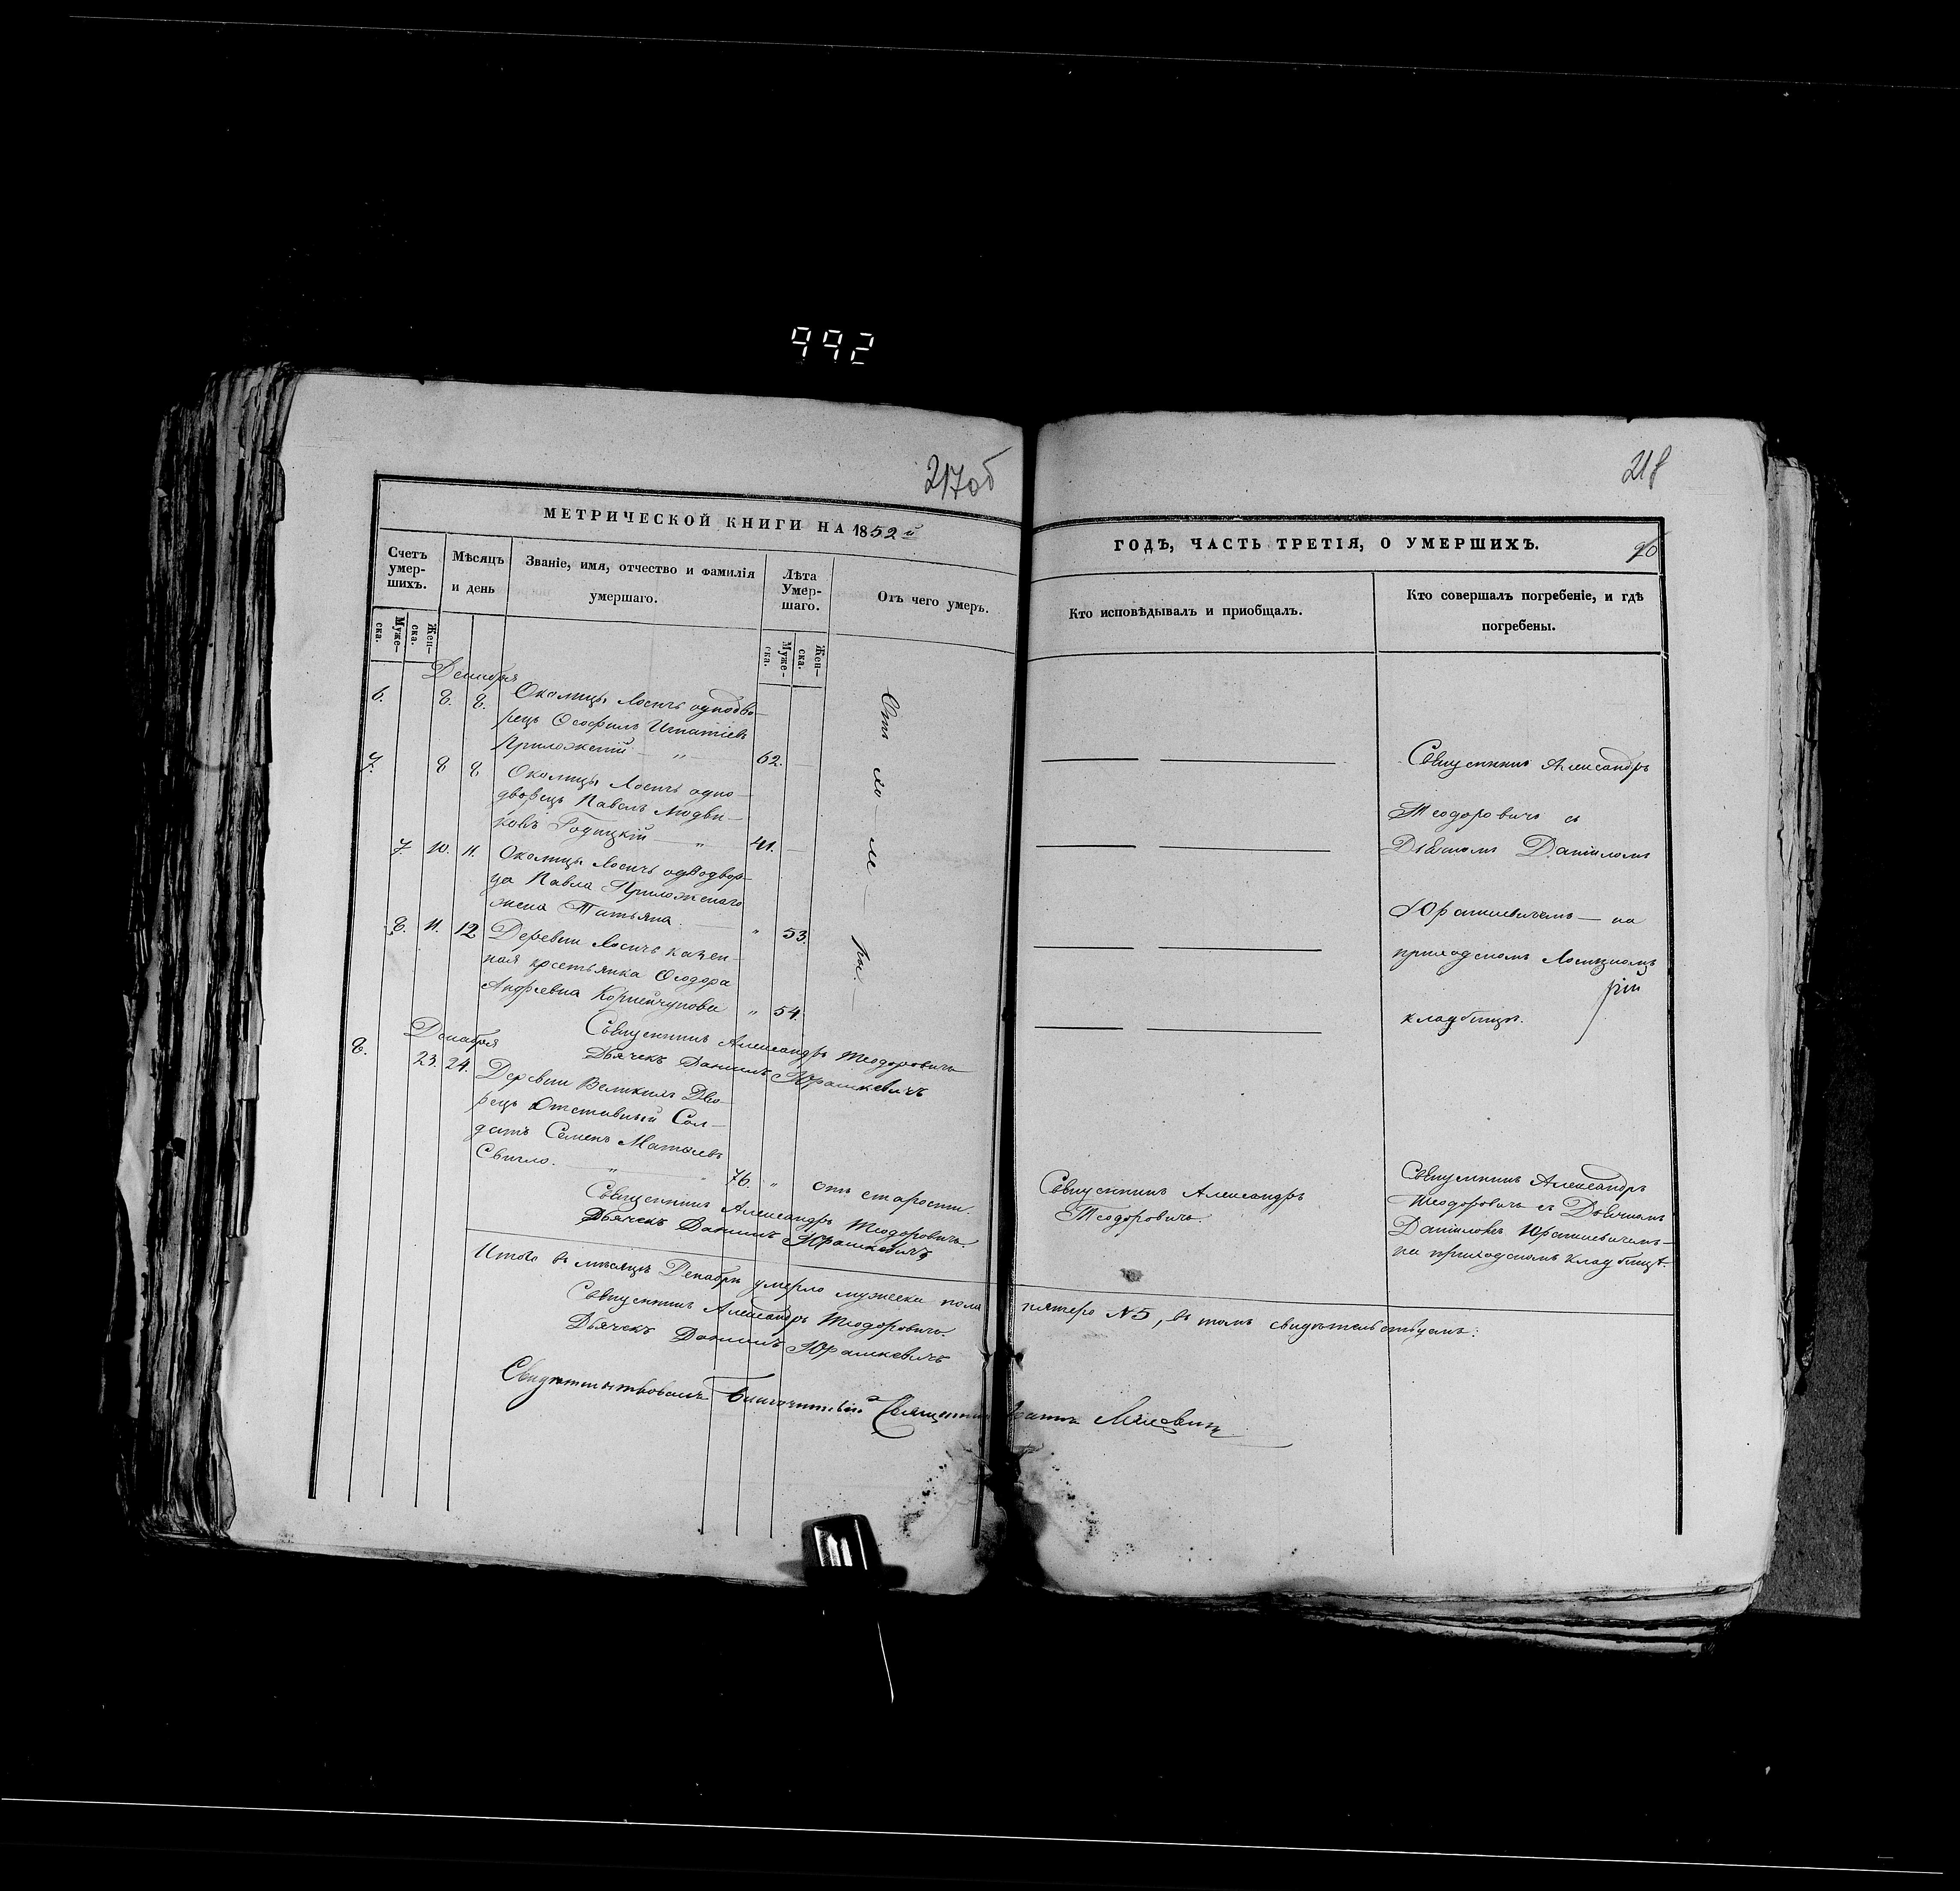 992
217об
МЕТРИЧЕСКОЙ КНИГИ НА 1852й
Счетъ умер-шихъ.
Мѣсяцъ и день
Званіе, имя, отчество и фамилія умершаго.
Лѣта Умер-шаго.
Отъ чего умеръ.
Муже-ска.
Жен-ска.
Муже-ска.
Жен-ска.
Декабря
6. 8. 8. Околицы Лосичъ однодво-
рецъ Ѳеофилъ Игнатіевъ
62.
7. 8 8 Околицы Лосичъ одно-
дворецъ Павелъ Людви-
ковъ Годицкій — " 41. —
7. 10. 11. Околицы Лосичъ однодвор-
ца Павла
жена Татьяна. " 53.
8. 11. 12 Деревни Лосичъ казен-
ная крестьянка Ѳеодора
Андреевна " 54.
Отъ хо-ле-ры.—
Священникъ Александръ Теодоровичъ
Дьячекъ Даніилъ Юрашкевичъ
Декабря
8. 23. 24. Деревни Великихъ Дво-
рецъ Отставный Сол-
датъ Семенъ Матвѣевъ
" 76. " отъ старости.
Священникъ Александръ Теодоровичъ.
Дьячекъ Даніилъ Юрашкевичъ
Итого въ мѣсяцѣ Декабрѣ умерло мужеска пола
Священникъ Александръ Теодоровичъ.
Дьячекъ Даніилъ Юрашкевичъ
Свидѣтельствовалъ Благочинный Священникъ Іоаннъ
218
ГОДЪ, ЧАСТЬ ТРЕТІЯ, О УМЕРШИХЪ.
Кто исповѣдывалъ и пріобщалъ.
Кто совершалъ погребеніе, и гдѣ погребены.
Священникъ Александръ
Теодоровичъ съ
Дьячкомъ Даніиломъ
Юрашкевичемъ — на
приходскомъ
кладбищѣ.
Священникъ Александръ
Теодоровичъ.
Священникъ Александръ
Теодоровичъ съ Дьячкомъ
Даніиломъ Юрашкевичемъ—
на приходскомъ кладбищѣ.
пятеро №5, въ томъ свидѣтельствуемъ: